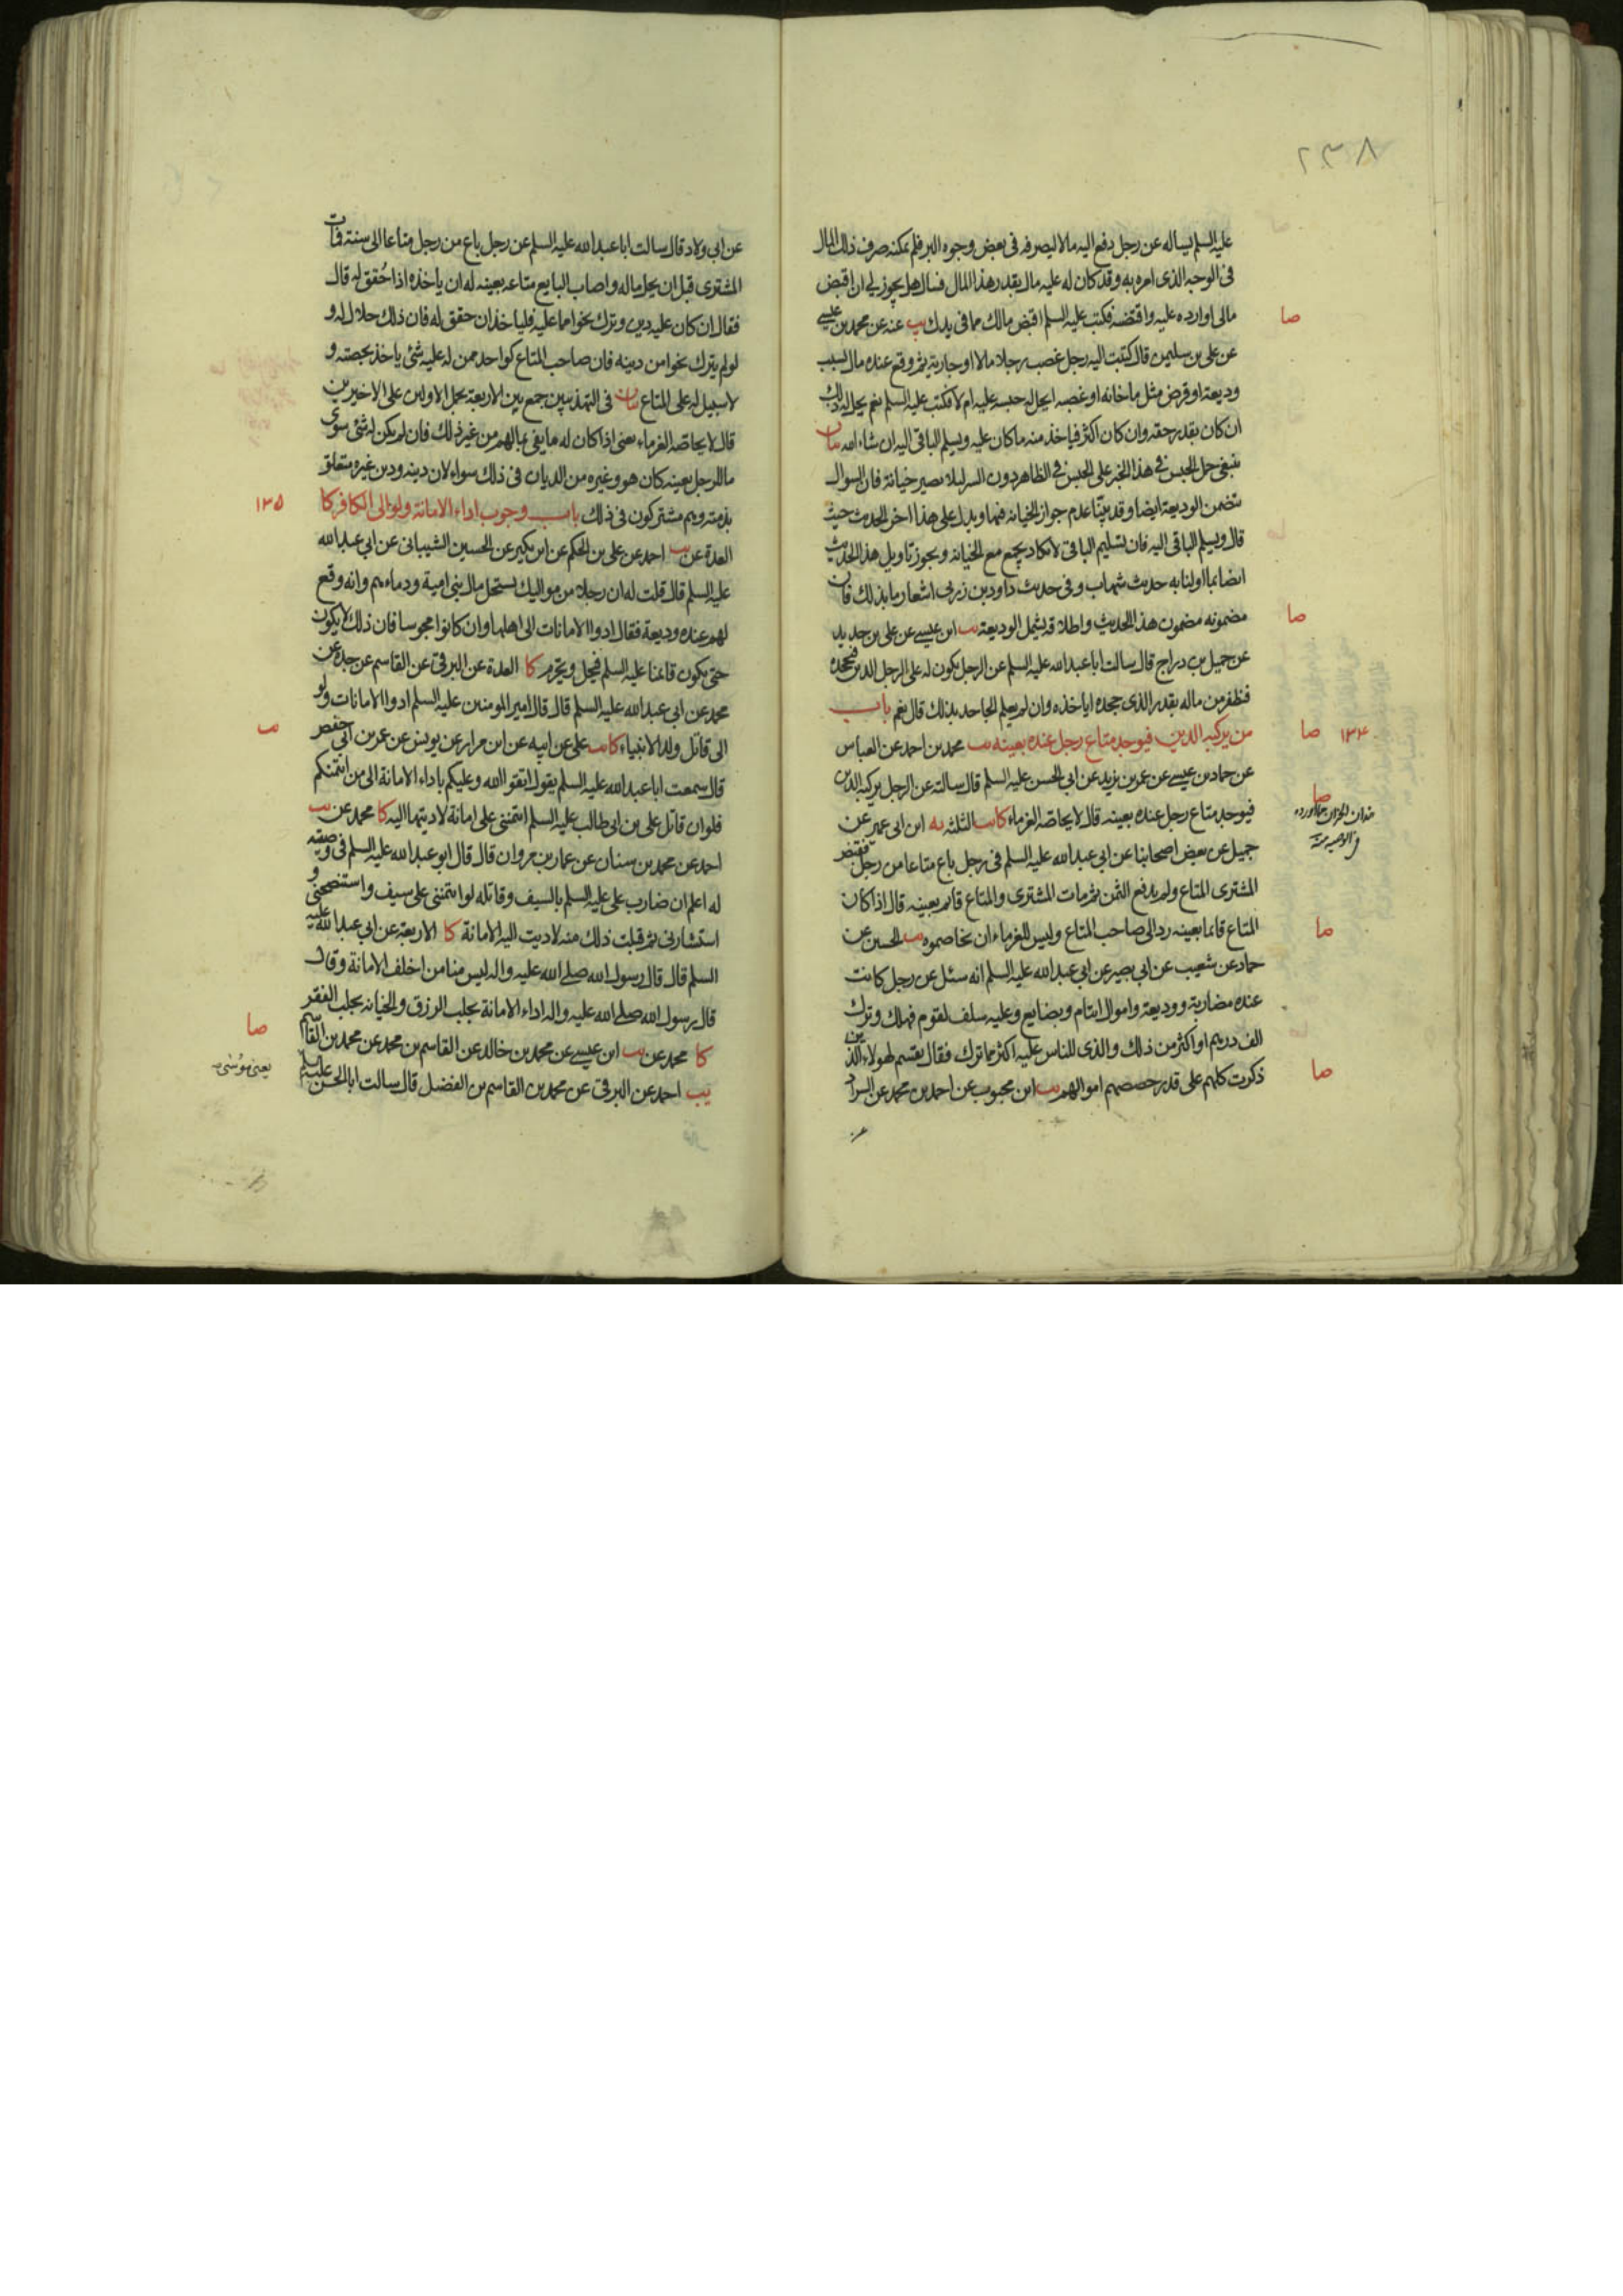 ٢٣٨
عليه السلم يساله عن رجل دفع اليه مالا ليصرفه فى بعض وجوه البر فلم يمكنه صرف ذلك المال
فى الوجه الذى امره به وقد كان له عليه مال بقدر هذا المال فسال هل يجوز لى ان اقبض
مالى او ارده عليه واقتضيه فكتب عليه السلم اقبض مالك مما فى يدك يب عنه عن محمد بن عيسى
صا
عن على بن سليمن قال كتبت اليه رجل غصب رجلا مالا او جارية ثم وقع عنده مال بسبب
وديعة او قرض مثل ما خانه او غصبه ايحل له حبسه عليه ام لا فكتب عليه السلم نعم يحل له ذلك
ان كان بقدر حقه وان كان اكثر فياخذ منه ما كان عليه ويسلم الباقى اليه ان شاء الله بيان
ينبغى حمل الحبس فى هذا الخبر على الحبس فى الظاهر دون السر لئلا يصير خيانة فان السوال
يتضمن الوديعة ايضا وقد بينا عدم جواز الخيانه فيها ويدل على هذا اخر الحديث حيث
قال ويسلم الباقى اليه فان تسليم الباقى لا يكاد يجتمع مع الخيانه ويجوز تاويل هذا الحديث
ايضا بما اولنا به حديث شهاب وفى حديث داود بن زربى اشعار ما بذلك فان
مضمونه مضمون هذا الحديث واطلاقه يشمل الوديعة يب ابن عيسى عن على بن حديد
صا
عن جميل بن دراج قال سالت ابا عبدالله عليه السلم عن الرجل يكون له على الرجل الدين فيجحده
فظفر من ماله بقدر الذى جحده اياخذه وان لم يعلم الجاحد بذلك قال نعم باب
من يركبه الدين فيوجد متاع رجل عنده بعينه يب محمد بن احمد عن العباس
١٣٤ صا
عن حماد بن عيسى عن عمر بن يزيد عن ابى الحسن عليه السلم قال سالته عن الرجل يركبه الدين
فيوجد متاع رجل عنده بعينه قال لا يحاصه الغرماء كا يب الثلثة يه ابن ابى عمير عن
صا
جميل عن بعض اصحابنا عن ابى عبدالله عليه السلم فى رجل باع متاعا من رجل فقبض
المشترى المتاع ولم يدفع الثمن ثم مات المشترى والمتاع قائم بعينه قال اذا كان
المتاع قائما بعينه رد الى صاحب المتاع وليس للغرماء ان يخاصموه يب الحسين عن
صا
حماد عن شعيب عن ابى بصير عن ابى عبدالله عليه السلم انه سئل عن رجل كانت
عنده مضاربة ووديعة واموال ايتام وبضايع وعليه سلف لقوم فهلك وترك
الف درهم او اكثر من ذلك والذى للناس عليه اكثر مما ترك فقال يقسم لهولاء الذين
ذكرت كلهم على قدر حصصهم اموالهم يب ابن محبوب عن احمد بن محمد عن السراد
صا
عن
عن ابى ولاد قال سالت ابا عبدالله عليه السلم عن رجل باع من رجل متاعا الى سنة فمات
المشترى قبل ان يحل ماله واصاب البايع متاعه بعينه له ان ياخذه اذا حُقق له قال
فقال ان كان عليه دين وترك نحوا مما عليه فلياخذ ان حقق له فان ذلك حلال له و
لو لم يترك نحوا من دينه فان صاحب المتاع كواحد ممن له عليه شئ ياخذ بحصته و
لا سبيل له على المتاع بيان فى التهذيبين جمع بين الاربعة بحمل الاولين على الاخيرين
قال لا يحاصه الغرماء يعنى اذا كان له ما يفى بمالهم من غير ذلك فان لم يكن له شئ سوى
مال الرجل بعينه كان هو وغيره من الديان فى ذلك سواء لان دينه ودين غيره متعلق
بذمته وهم مشتركون فى ذلك باب وجوب اداء الامانة ولو الى الكافر كا
١٣٥
العدة عن يب احمد عن على بن الحكم عن ابن بكير عن الحسين الشيبانى عن ابى عبدالله
عليه السلم قال قلت له ان رجلا من مواليك يستحل مال بنى امية ودماءهم وانه وقع
لهم عنده وديعة فقال ادوا الامانات الى اهلها وان كانوا مجوسا فان ذلك لا يكون
حتى يكون قائمنا عليه السلم فيحل ويحرم كا العدة عن البرقى عن القاسم عن جده عن
محمد عن ابى عبدالله عليه السلم قال قال امير المومنين عليه السلم ادوا الامانات ولو
الى قاتل ولد الانبياء كا يب على عن ابيه عن ابن مرار عن يونس عن عمر بن ابى حفص
قال سمعت ابا عبدالله عليه السلم يقول اتقوا الله وعليكم باداء الامانة الى من ائتمنكم
فلو ان قاتل على بن ابى طالب عليه السلم ائتمننى على امانة لاديتها اليه كا محمد عن يب
احمد عن محمد بن سنان عن عمار بن مروان قال قال ابو عبدالله عليه السلم فى وصيته
له اعلم ان ضارب على عليه السلم بالسيف وقاتله لو ائتمننى على سيف واستنصحنى و
استشارنى ثم قبلت ذلك منه لاديت اليه الامانة كا الاربعة عن ابى عبدالله عليه
السلم قال قال رسول الله صلى الله عليه واله ليس منا من اخلف الامانة وقال
قال رسول الله صلى الله عليه واله اداء الامانة يجلب الرزق والخيانه يجلب الفقر
كا محمد عن يب ابن عيسى عن محمد بن خالد عن القاسم بن محمد عن محمد بن القاسم
صا
يب احمد عن البرقى عن محمد بن القاسم بن الفضيل قال سالت ابا الحسن عليه السلم
يعنى موسى